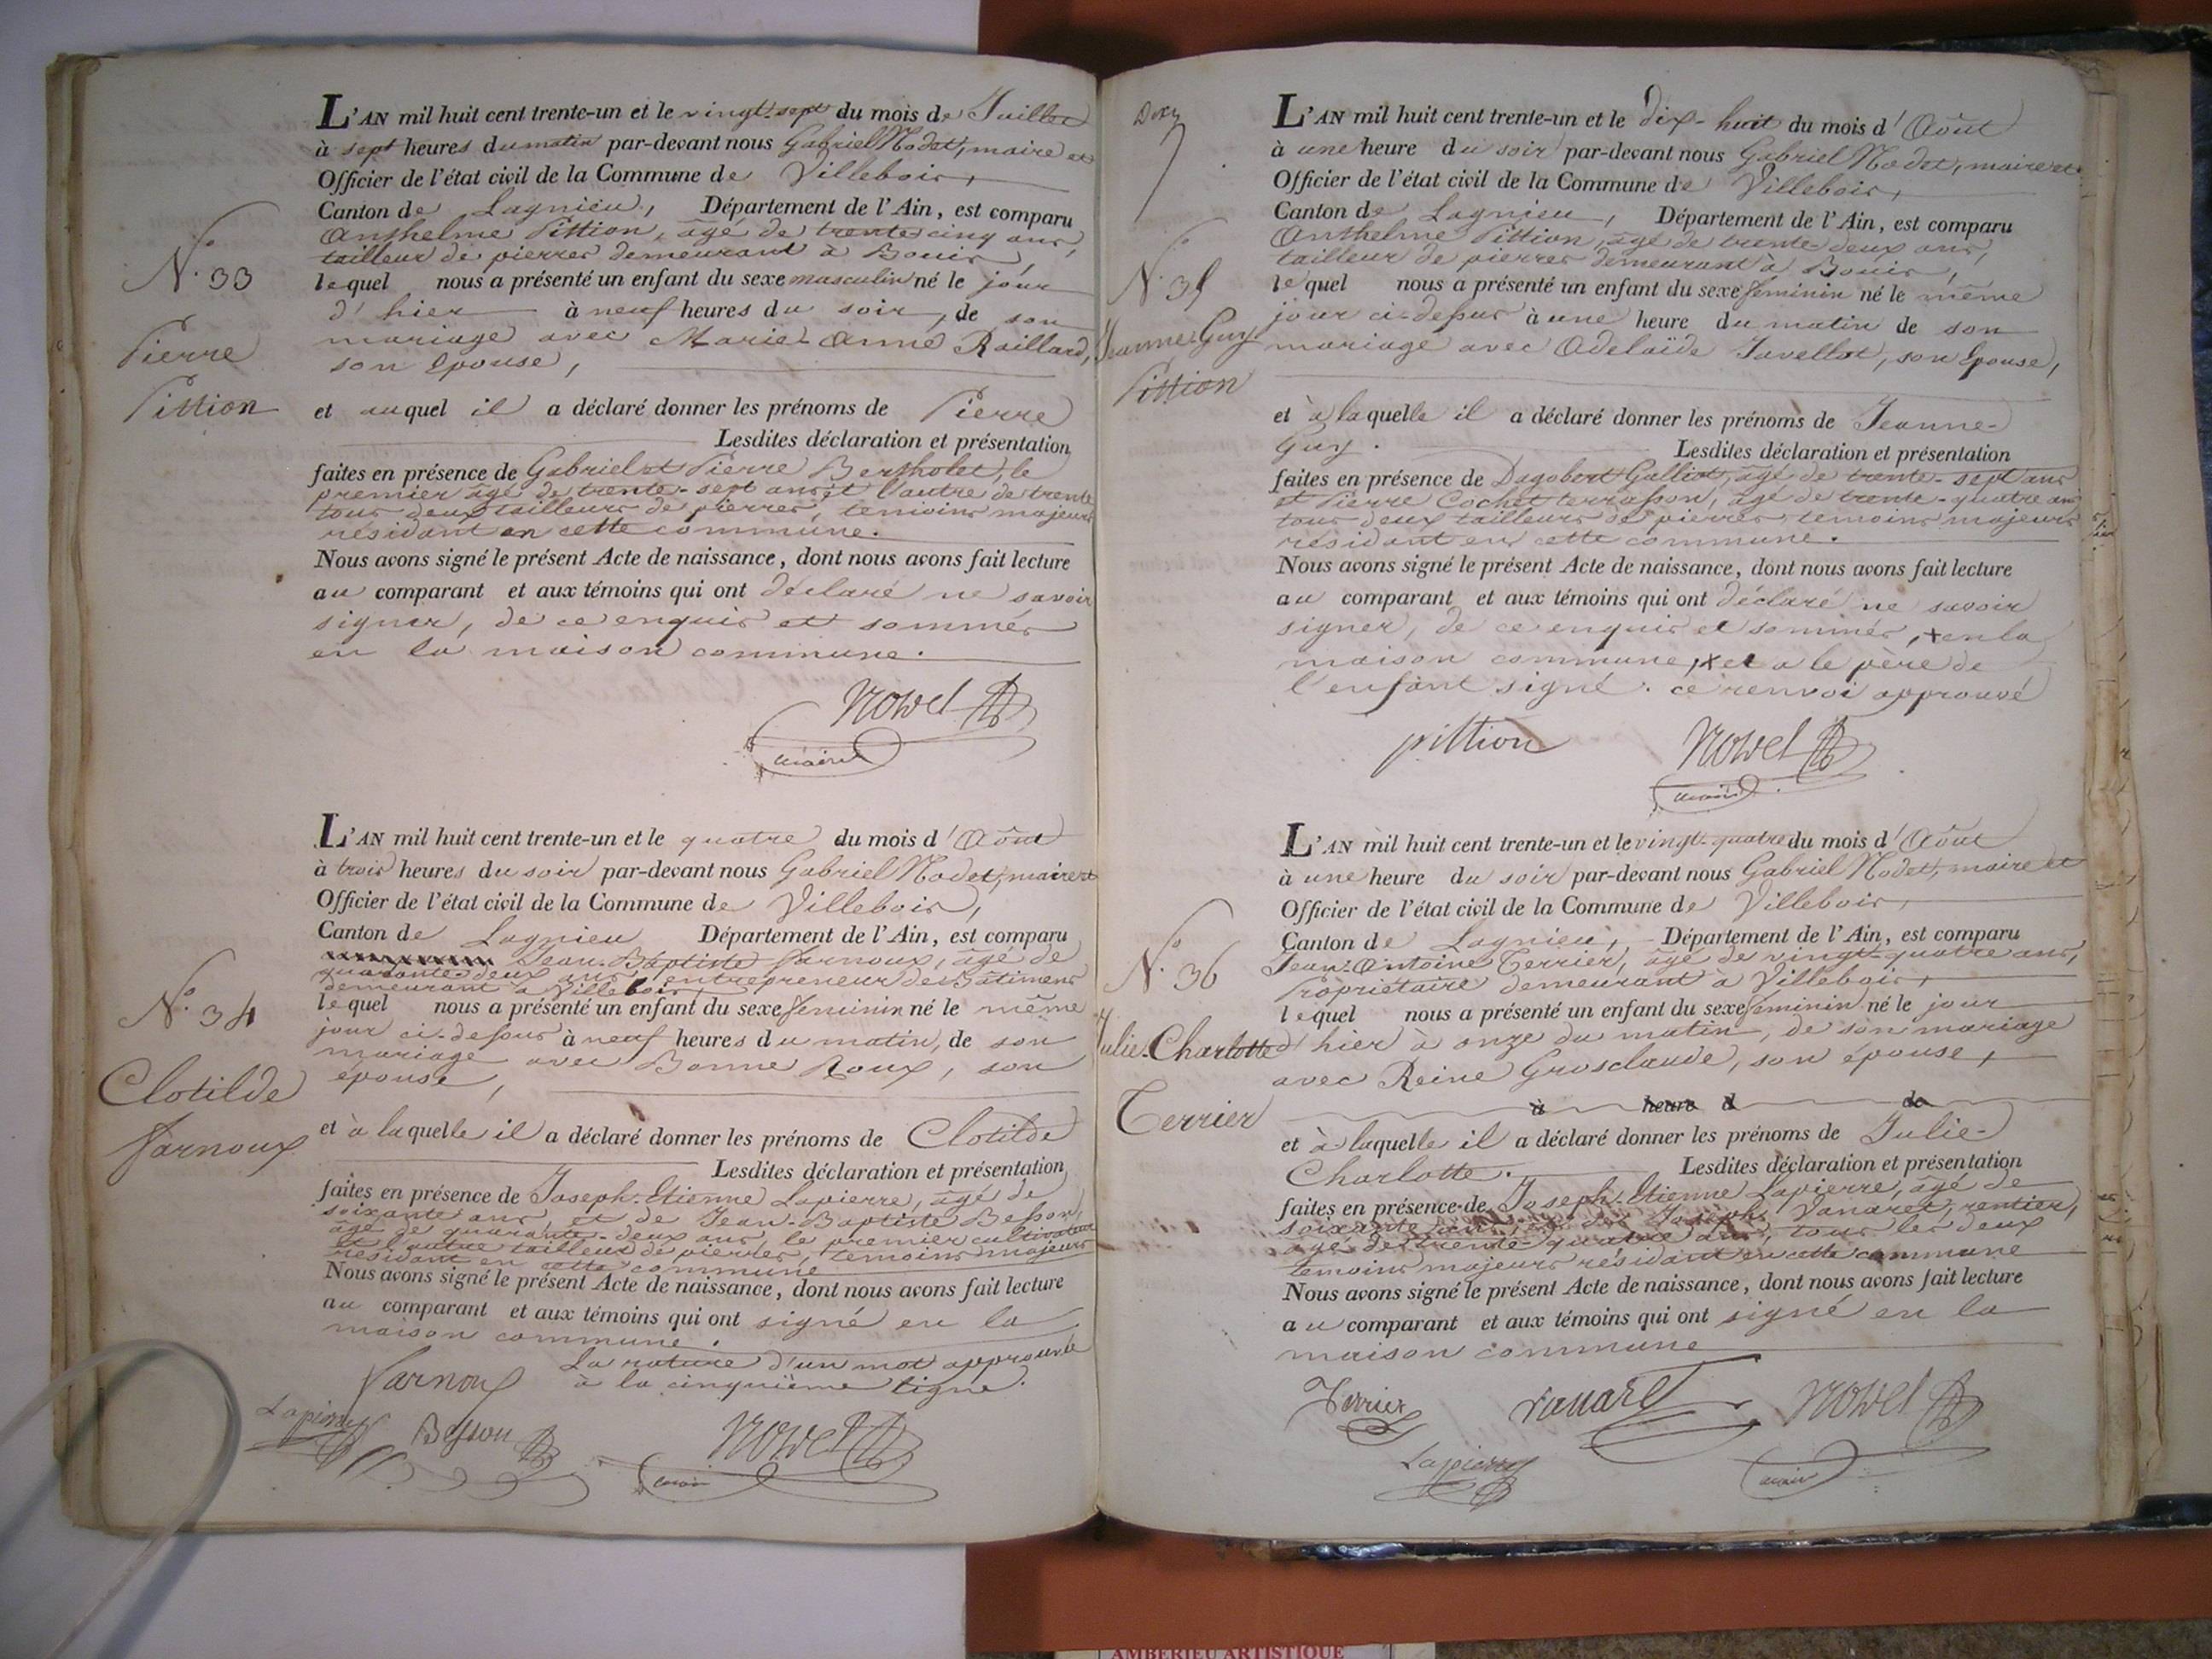 L'AN mil huit cent trente-un et le vingt-sept du mois de Juillet
à sept heures du matin par-devant nous Gabriel Nodet, maire et
Officier de l'état civil de la Commune de Villebois,
Canton de Lagnieu, Département de l'Ain, est comparu
Anthelme Pittion, âgé de trente cinq ans,
tailleur de pierres demeurant à Bouis,
N.° 33
lequel nous a présenté un enfant du sexe masculin né le jour
d'hier à neuf heures du soir, de son
mariage avec Marie-Anne Raillard,
Pierre
son épouse,
Pittion
et auquel il a déclaré donner les prénoms de Pierre
Lesdites déclaration et présentation
faites en présence de Gabriel et Pierre Bertholet, le
premier âgé de trente-sept ans et l'autre de trente
tous deux tailleurs de pierres, témoins majeurs
résidant en cette commune.
Nous avons signé le présent Acte de naissance, dont nous avons fait lecture
au comparant et aux témoins qui ont déclaré ne savoir
signer, de ce enquis et sommés
en la maison commune.
maire
L'AN mil huit cent trente-un et le quatre du mois d'Août
à trois heures du soir par-devant nous Gabriel Nodet, maire et
Officier de l'état civil de la Commune de Villebois,
Canton de Lagnieu Département de l'Ain, est comparu
Jean-Baptiste Varnoux, âgé de
quarante-deux ans, entrepreneur de Bâtimens
demeurant à Villebois,
N.° 34
lequel nous a présenté un enfant du sexe féminin né le même
jour ci-dessus à neuf heures du matin, de son
mariage avec Bonne Roux, son
Clotilde
épouse,
Varnoux
et à laquelle il a déclaré donner les prénoms de Clotilde
Lesdites déclaration et présentation
faites en présence de Joseph-Etienne Lapierre, âgé de
soixante ans et de Jean-Baptiste Besson,
âgé de quarante-deux ans, le premier cultivateur
et l'autre tailleur de pierres, témoins majeurs
résidant en cette commune
Nous avons signé le présent Acte de naissance, dont nous avons fait lecture
au comparant et aux témoins qui ont signé en la
maison commune.
La rature d'un mot approuvée
à la cinquième ligne.
Varnoux
Lapierre Besson
maire
L'AN mil huit cent trente-un et le dix-huit du mois d'Août
à une heure du soir par-devant nous Gabriel Nodet, maire et
Officier de l'état civil de la Commune de Villebois,
Canton de Lagnieu, Département de l'Ain, est comparu
Anthelme Pittion, âgé de trente-deux ans,
tailleur de pierres demeurant à Bouis,
N.° 35
lequel nous a présenté un enfant du sexe féminin né le même
jour ci-dessus à une heure du matin de son
Jeanne-Guy
mariage avec Adelaïde Javellot, son épouse,
Pittion
et à laquelle il a déclaré donner les prénoms de Jeanne-
Guy. Lesdites déclaration et présentation
faites en présence de Dagobert Galliot, âgé de trente-sept ans
et Pierre Cochet terrasson, âgé de trente-quatre ans
tous deux tailleurs de pierres, témoins majeurs
résidant en cette commune.
Nous avons signé le présent Acte de naissance, dont nous avons fait lecture
au comparant et aux témoins qui ont déclaré ne savoir
signer, de ce enquis et sommés, + en la
maison commune, + et a le père de
l'enfant signé. ce renvoi approuvé
pittion
maire
L'AN mil huit cent trente-un et le vingt-quatre du mois d'Août
à une heure du soir par-devant nous Gabriel Nodet, maire et
Officier de l'état civil de la Commune de Villebois,
Canton de Lagnieu, Département de l'Ain, est comparu
Jean-Antoine Terrier, âgé de vingt-quatre ans,
Propriétaire demeurant à Villebois,
N.° 36
lequel nous a présenté un enfant du sexe féminin né le jour
Julie-Charlotte
d'hier à onze du matin, de son mariage
avec Reine Grosclaude, son épouse,
Terrier
à heure d de
et à laquelle il a déclaré donner les prénoms de Julie-
Charlotte. Lesdites déclaration et présentation
faites en présence de Joseph-Etienne Lapierre, âgé de
soixante ans, et de Joseph Vanaret, rentier,
âgé de trente quatre ans, tous les deux
témoins majeurs résidant en cette commune
Nous avons signé le présent Acte de naissance, dont nous avons fait lecture
au comparant et aux témoins qui ont signé en la
maison commune
Terrier Vanaret
Lapierre
maire
AMBERIEU ARTISTIQUE